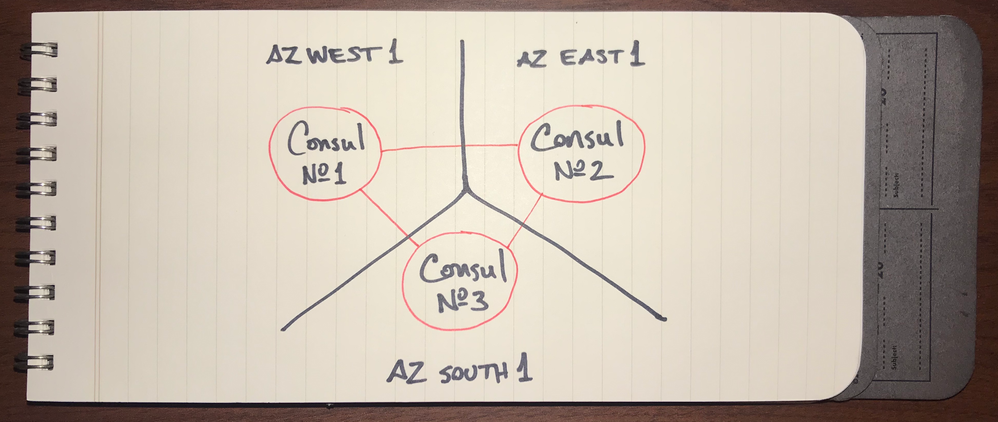 AZ WEST 1
AZ EAST 1
Consul
Nº1
Consul
Nº2
Consul
Nº3
AZ SOUTH 1
Subject:
Subject: